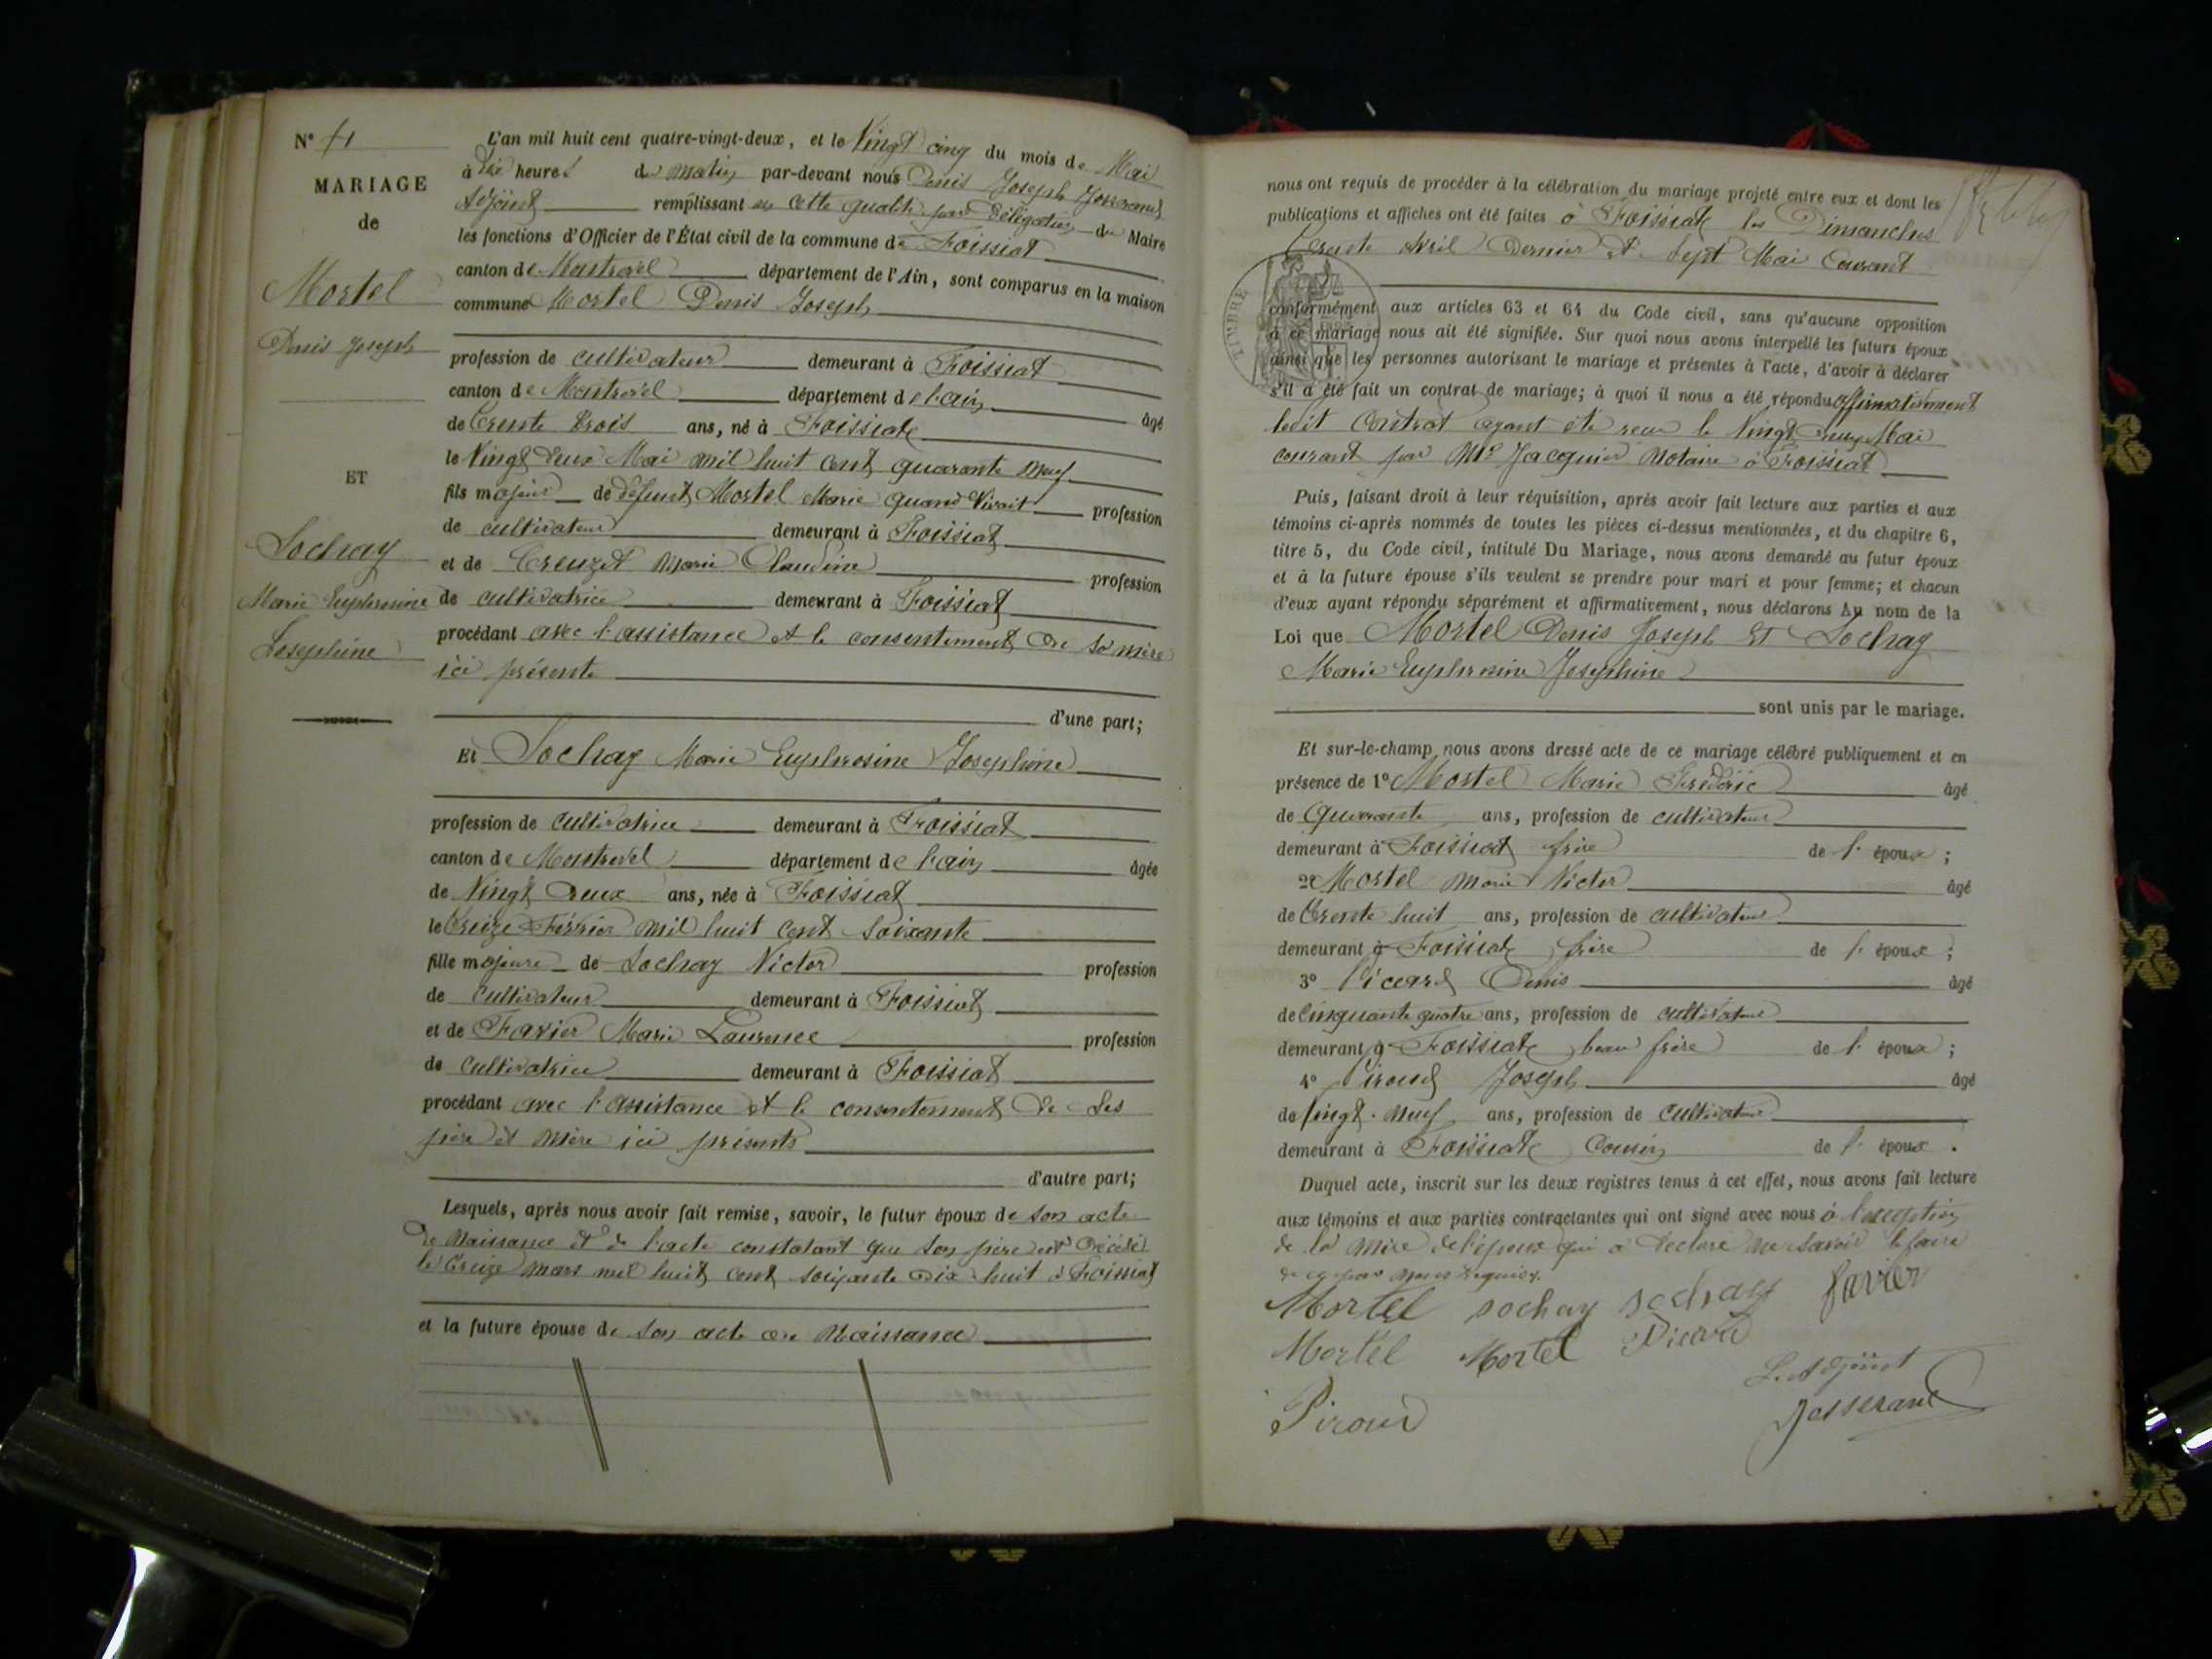 N° 11
MARIAGE
de
Mortel
Denis Joseph
ET
Sochay
Marie Euphrosine
Josephine
L'an mil huit cent quatre-vingt-deux, et le Vingt cinq du mois de Mai
à dix heures du matin par-devant nous Denis Joseph Josserand
Adjoint remplissant en cette qualité par délégation du Maire
les fonctions d'Officier de l'État civil de la commune de Foissiat
canton de Montrevel département de l'Ain, sont comparus en la maison
commune Mortel Denis Joseph
profession de cultivateur demeurant à Foissiat
canton de Montrevel département de l'ain âgé
de Trente trois ans, né à Foissiat
le Vingt deux Mai mil huit cent quarante neuf
fils majeur de défunt Mortel Marie quand Vivait profession
de cultivateur demeurant à Foissiat
et de Creuzet Marie Claudine profession
de cultivatrice demeurant à Foissiat
procédant avec l'assistance et le consentement de sa mère
ici présente
d'une part;
Et Sochay Marie Euphrosine Josephine
profession de cultivatrice demeurant à Foissiat
canton de Montrevel département de l'ain âgée
de Vingt deux ans, née à Foissiat
le Treize Février mil huit cent soixante
fille majeure de Sochay Victor profession
de cultivateur demeurant à Foissiat
et de Favier Marie Laurence profession
de cultivatrice demeurant à Foissiat
procédant avec l'assistance et le consentement de ses
père et mère ici présents
d'autre part;
Lesquels, après nous avoir fait remise, savoir, le futur époux de son acte
de Naissance et de l'acte constatant que son père est décédé
le Treize mars mil huit cent soixante dix huit à Foissiat
et la future épouse de son acte de Naissance
nous ont requis de procéder à la célébration du mariage projeté entre eux et dont les
publications et affiches ont été faites à Foissiat les Dimanches
Trente Avril dernier et sept Mai courant
TIMBRE
conformément aux articles 63 et 64 du Code civil, sans qu'aucune opposition
à ce mariage nous ait été signifiée. Sur quoi nous avons interpellé les futurs époux
ainsi que les personnes autorisant le mariage et présentes à l'acte, d'avoir à déclarer
s'il a été fait un contrat de mariage; à quoi il nous a été répondu affirmativement
ledit contrat ayant été reçu le Vingt deux Mai
courant par Me Jacquier Notaire à Foissiat
Puis, faisant droit à leur réquisition, après avoir fait lecture aux parties et aux
témoins ci-après nommés de toutes les pièces ci-dessus mentionnées, et du chapitre 6,
titre 5, du Code civil, intitulé Du Mariage, nous avons demandé au futur époux
et à la future épouse s'ils veulent se prendre pour mari et pour femme; et chacun
d'eux ayant répondu séparément et affirmativement, nous déclarons Au nom de la
Loi que Mortel Denis Joseph ET Sochay
Marie Euphrosine Josephine
sont unis par le mariage.
Et sur-le-champ nous avons dressé acte de ce mariage célébré publiquement et en
présence de 1° Mortel Marie Frédéric âgé
de Quarante ans, profession de cultivateur
demeurant à Foissiat frère de l'époux;
2° Mortel Marie Victor âgé
de Trente huit ans, profession de cultivateur
demeurant à Foissiat frère de l'époux;
3° Picard Denis âgé
de Cinquante quatre ans, profession de cultivateur
demeurant à Foissiat beau frère de l'époux;
4° Piroud Joseph âgé
de Vingt-neuf ans, profession de cultivateur
demeurant à Foissiat Cousin de l'époux.
Duquel acte, inscrit sur les deux registres tenus à cet effet, nous avons fait lecture
aux témoins et aux parties contractantes qui ont signé avec nous à l'exception
de la mère de l'époux qui a déclaré ne savoir le faire
de ce par nous requise.
Mortel sochay sochay favier
Mortel Mortel Picard
L'Adjoint
Piroud Josserand